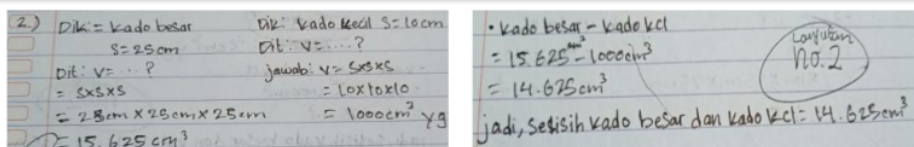 2.) Dik = kado besar
S = 25 cm
Dit : V = ... ?
= S x S x S
= 25cm x 25cm x 25cm
= 15.625 cm³
Dik : kado kecil S = 10 cm
Dit : V = ....?
jawab : V = S x S x S
= 10 x 10 x 10
= 1000 cm³ yg
• kado besar - kado kcl
= 15.625 cm³ - 1000 cm³
= 14.625 cm³
jadi, selisih kado besar dan kado kcl = 14.625 cm³
Lanjutan
no. 2